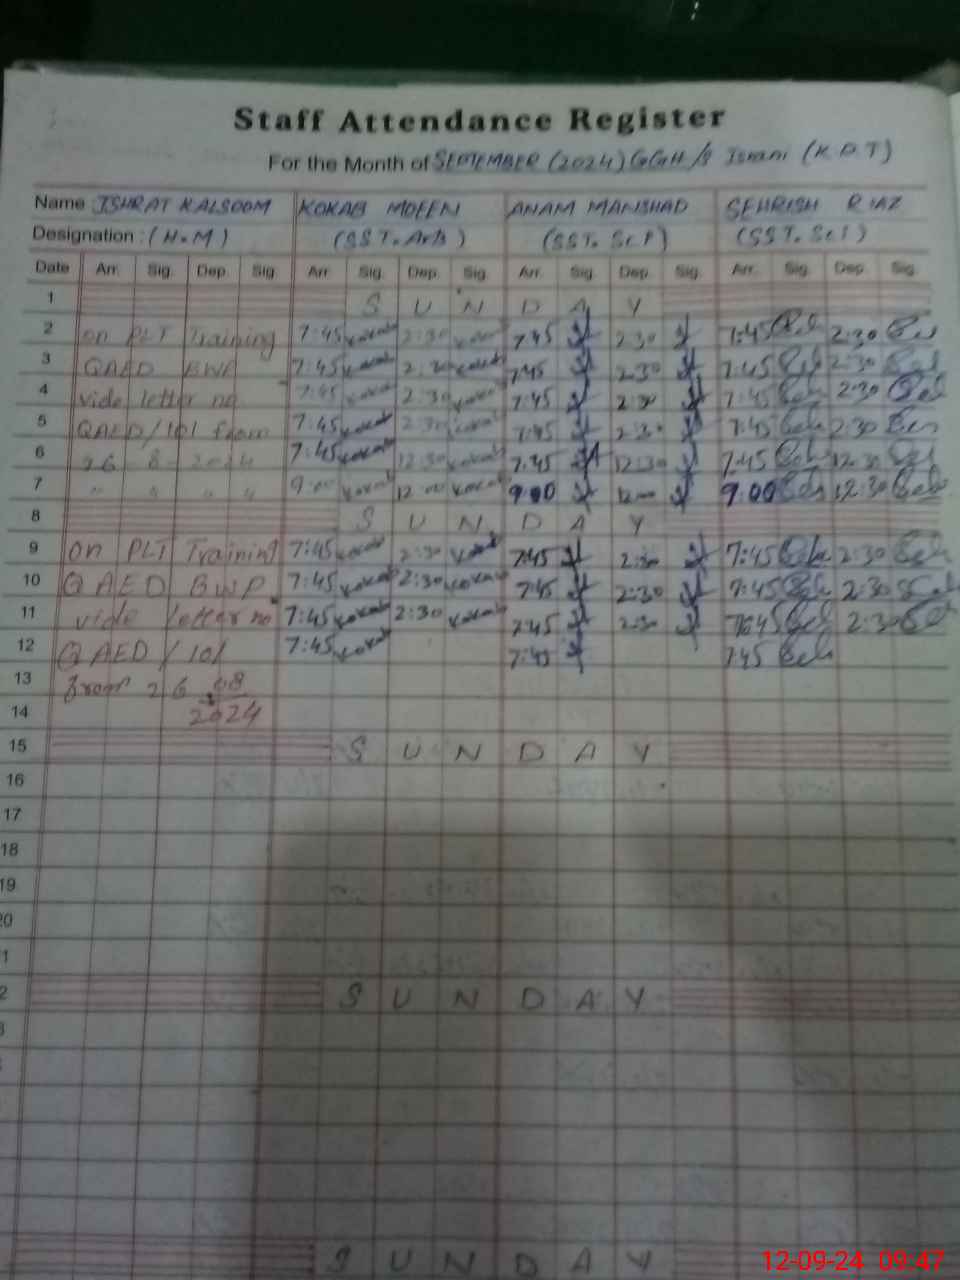 Staff Attendance Register
For the Month of SEPTEMBER (2024) GGH/S Israni (K.P.T)
Name ISHRAT KALSOOM KOKAB MOEEN ANAM MANSHAD SEHRISH RIAZ
Designation : (H.M) (SST. Arts) (SST. Sci) (SST. Sci)
Date Arr. Sig. Dep. Sig. Arr. Sig. Dep. Sig. Arr. Sig. Dep. Sig. Arr. Sig. Dep. Sig.
1 S U N D A Y
2 on PLT Training 7:45 Kokab 2:30 Kokab 7:45 2:30 7:45 Seh 2:30 Seh
3 QAED BWP 7:45 Kokab 2:30 Kokab 7:45 2:30 7:45 Seh 2:30 Seh
4 vide letter no 7:45 Kokab 2:30 Kokab 7:45 2:30 7:45 Seh 2:30 Seh
5 QAED/101 from 7:45 Kokab 2:30 Kokab 7:45 2:30 7:45 Seh 2:30 Seh
6 26 8 2024 7:45 Kokab 12:30 Kokab 7:45 12:30 7:45 Seh 12:30 Seh
7 " " " " 9:00 Kokab 12:00 Kokab 9:00 12:00 9:00 Seh 12:30 Seh
8 S U N D A Y
9 on PLT Training 7:45 Kokab 2:30 Kokab 7:45 2:30 7:45 Seh 2:30 Seh
10 QAED BWP 7:45 Kokab 2:30 Kokab 7:45 2:30 7:45 Seh 2:30 Seh
11 vide letter no 7:45 Kokab 2:30 Kokab 7:45 2:30 7:45 Seh 2:30 Seh
12 QAED / 101 7:45 Kokab 7:45 7:45 Seh
13 from 26 08
14 2024
15 S U N D A Y
16
17
18
19
20
1
2 S U N D A Y
S U N D A Y
12-09-24 09:47